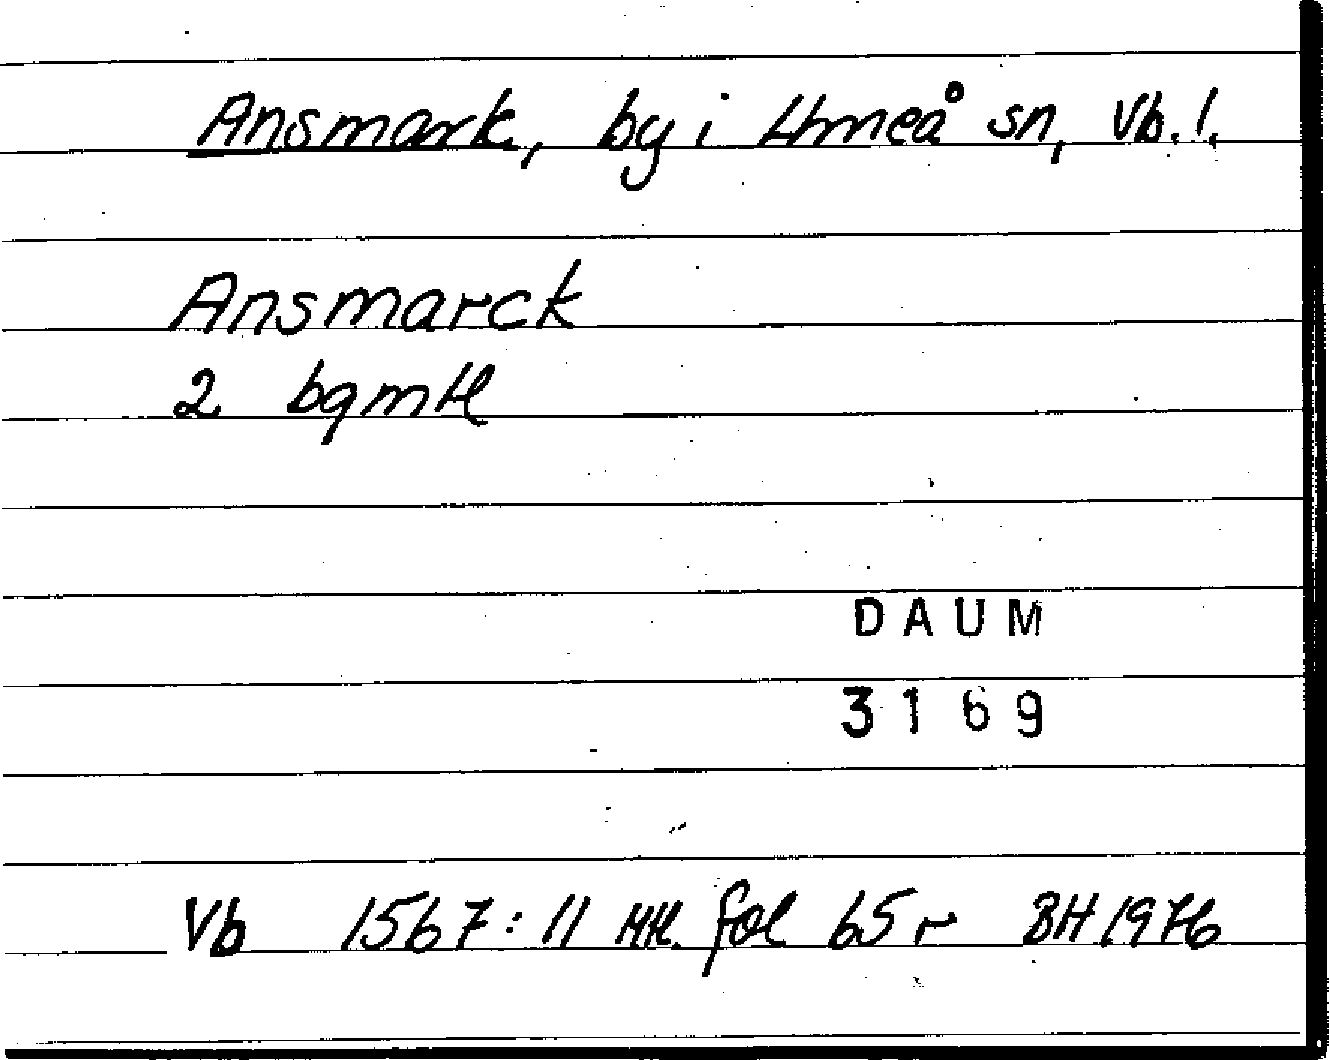 Ansmark, by i Umeå sn, Vb. l.
Ansmarck
2 bgmtl
DAUM
3169
Vb 1567:11 Ml. fol 65 r BH 1976